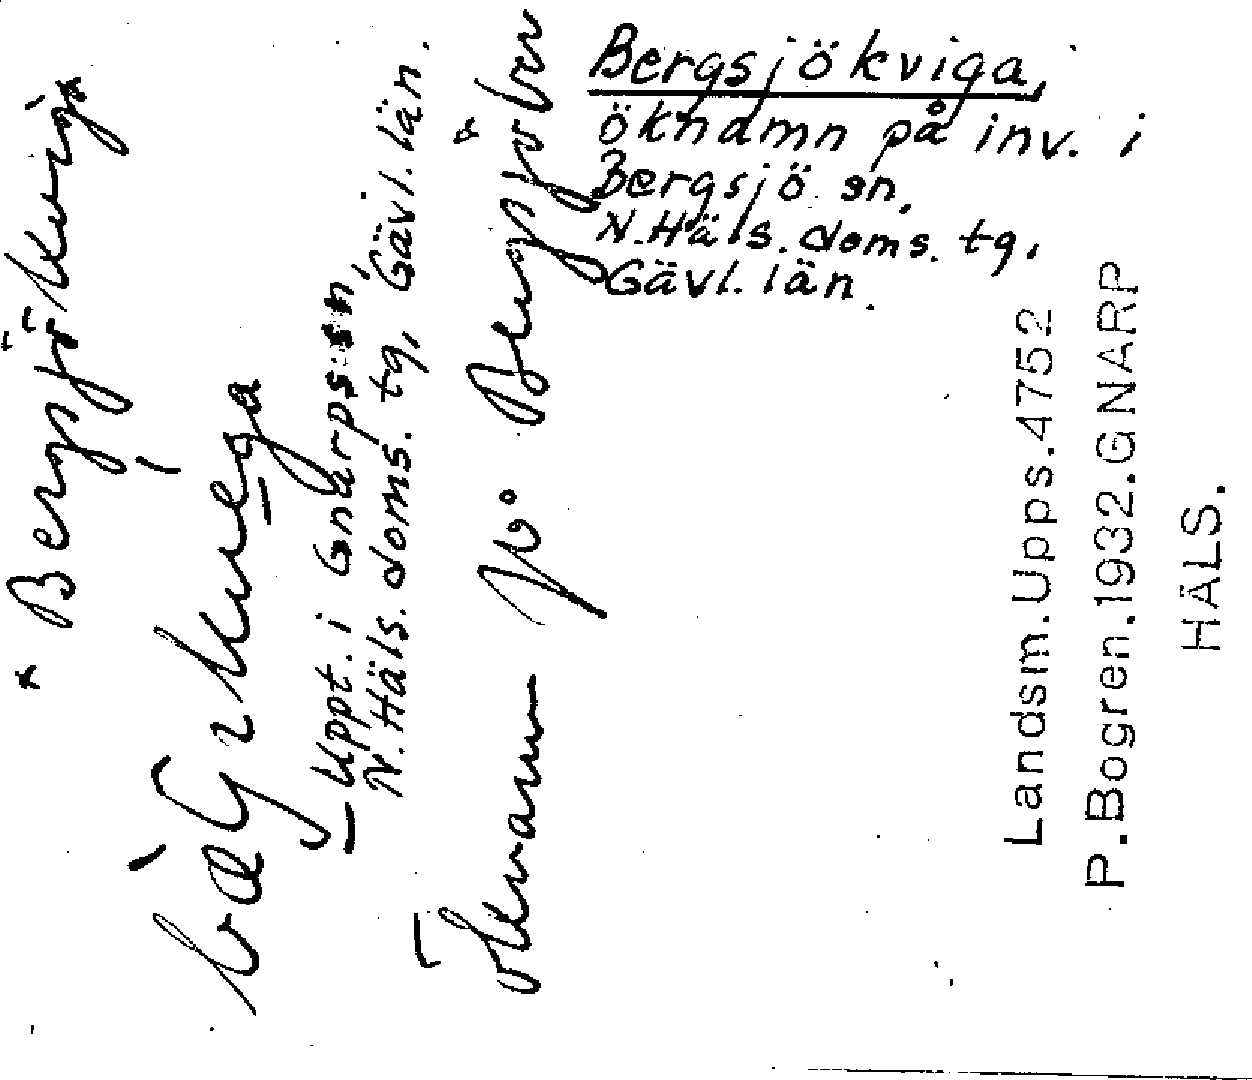 Bergsjökviga,
öknamn på inv. i
Bergsjö sn,
N.Häls.doms.tg,
Gävl.län.
* Bergsjökviga
Uppt. i Gnarps sn,
N.Häls.doms.tg, Gävl.län.
Öknamn på Bergsjöbor
Landsm.Upps.4752
P.Bogren.1932.GNARP
HÄLS.